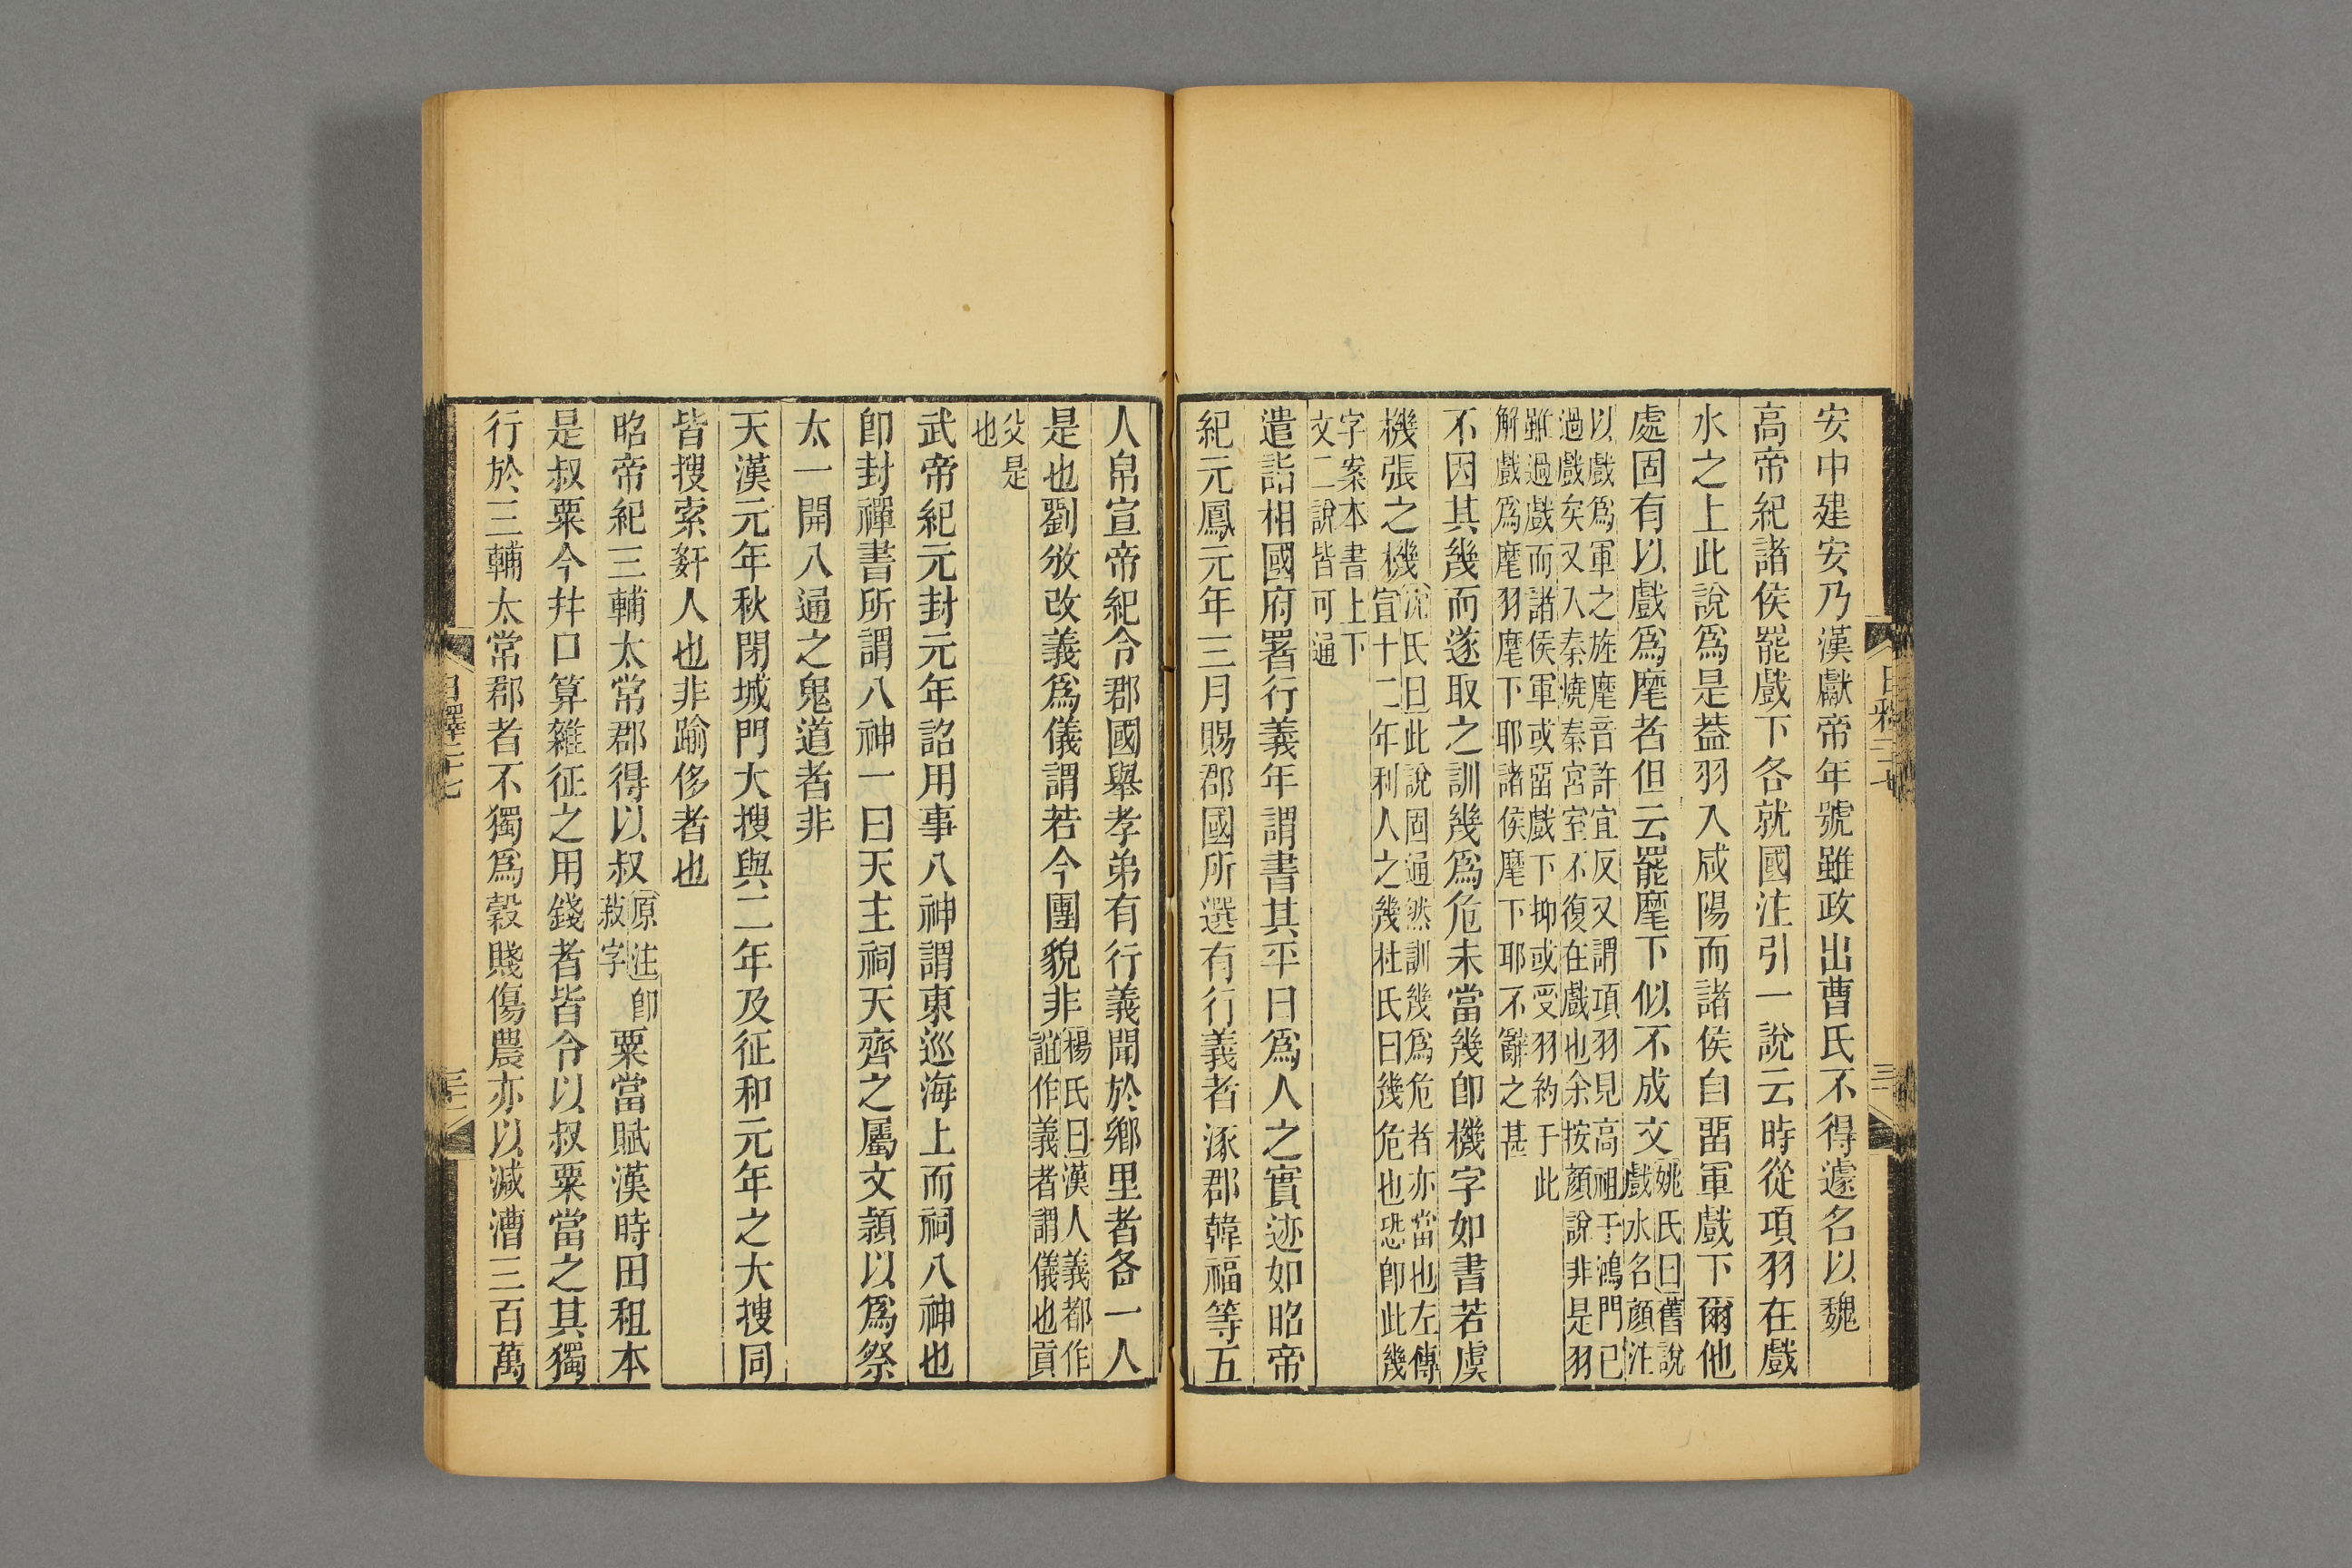 安中建安乃漢獻帝年號雖政出曹氏不得遽名以魏
高帝紀諸侯罷戲下各就國注引一說云時從項羽在戲
水之上此說爲是葢羽入咸陽而諸侯自畱軍戲下爾他
處固有以戲爲麾者但云罷麾下似不成文
姚氏曰舊說
戲水名顏注
以戲爲軍之旌麾音許宜反又謂項羽見高祖于鴻門已
過戲矣又入秦燒秦宮室不復在戲也余按顏說非是羽
雖過戲而諸侯軍或畱戲下抑或受羽約于此
解戲爲麾羽麾下耶諸侯麾下耶不辭之甚
不因其幾而遂取之訓幾爲危未當幾卽機字如書若虞
機張之機
沈氏曰此說固通然訓幾爲危者亦當也左傳
宣十二年利人之幾杜氏曰幾危也恐卽此幾
字案本書上下
文二說皆可通
遣詣相國府署行義年謂書其平日爲人之實迹如昭帝
紀元鳳元年三月賜郡國所選有行義者涿郡韓福等五
人帛宣帝紀令郡國舉孝弟有行義聞於鄉里者各一人
是也劉攽改義爲儀謂若今團貌非
楊氏曰漢人義都作
誼作義者謂儀也貢
父是
也
武帝紀元封元年詔用事八神謂東巡海上而祠八神也
卽封禪書所謂八神一曰天主祠天齊之屬文穎以爲祭
太一開八通之鬼道者非
天漢元年秋閉城門大搜與二年及征和元年之大搜同
皆搜索姧人也非踰侈者也
昭帝紀三輔太常郡得以叔
原注卽
菽字
粟當賦漢時田租本
是叔粟今幷口算雜征之用錢者皆令以叔粟當之其獨
行於三輔太常郡者不獨爲穀賤傷農亦以減漕三百萬